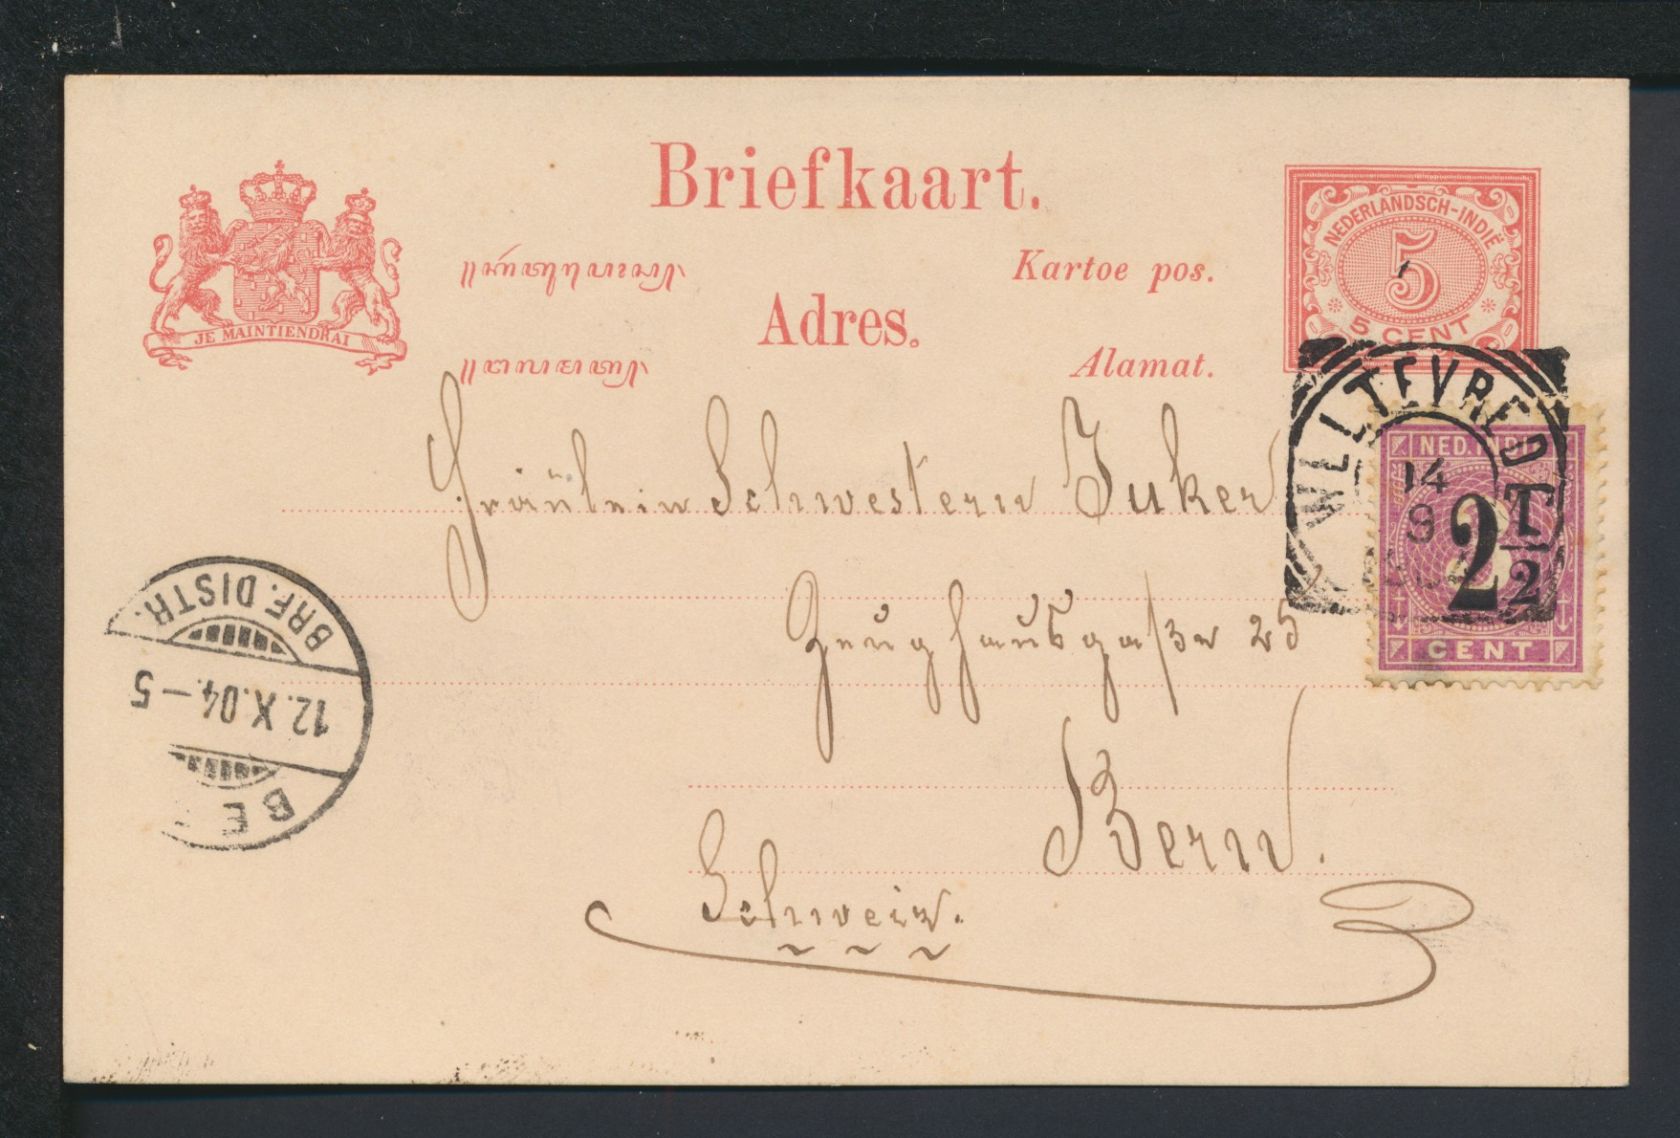 Briefkaart.
NEDERLANDSCH-INDIË
5
5 CENT
Kartoe pos.
Adres.
JE MAINTIENDRAI
Alamat.
WELTEVREDEN
14
9
NED. INDIË
2½
CENT
Fräulein Schwestern Juker
Zeughausgasse 25
Bern.
Schweiz.
BRF. DISTR.
12.X.04.-5
BE